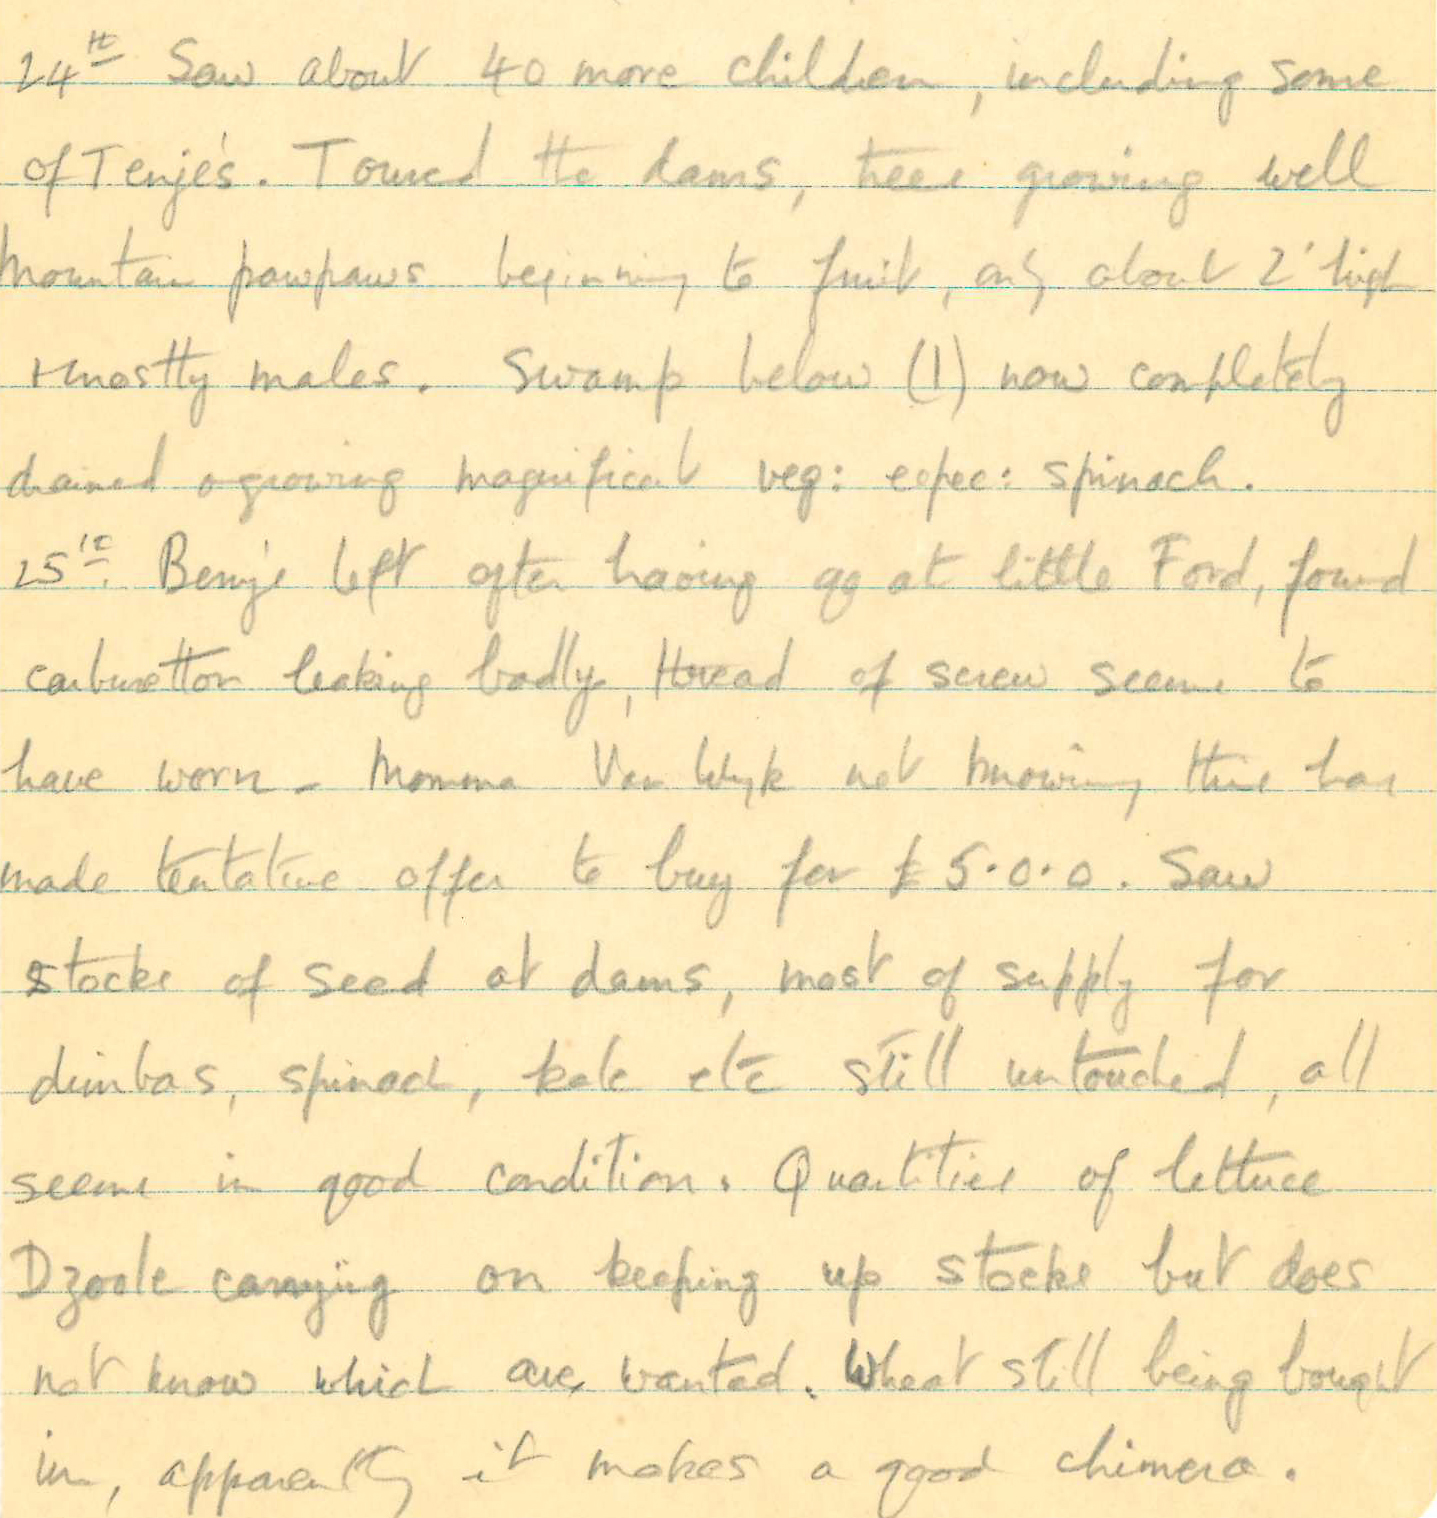 24th Saw about 40 more children, including some
of Tenje's. Toured the dams, trees growing well
Mountain pawpaws beginning to fruit, only about 2' high
+ mostly males. Swamp below (1) now completely
drained & growing magnificent veg: espec: spinach.
25th. Benji's left after having go at little Ford, found
carburettor leaking badly, thread of screw seems to
have worn - Momma Van Wyk not knowing this has
made tentative offer to buy for £5.0.0. Saw
stocks of seed at dams, most of supply for
dimbas, spinach, kale etc still untouched, all
seems in good condition. Quantities of lettuce
Dzoole carrying on keeping up stocks but does
not know which are wanted. Wheat still being bought
in, apparently it makes a good chimera.